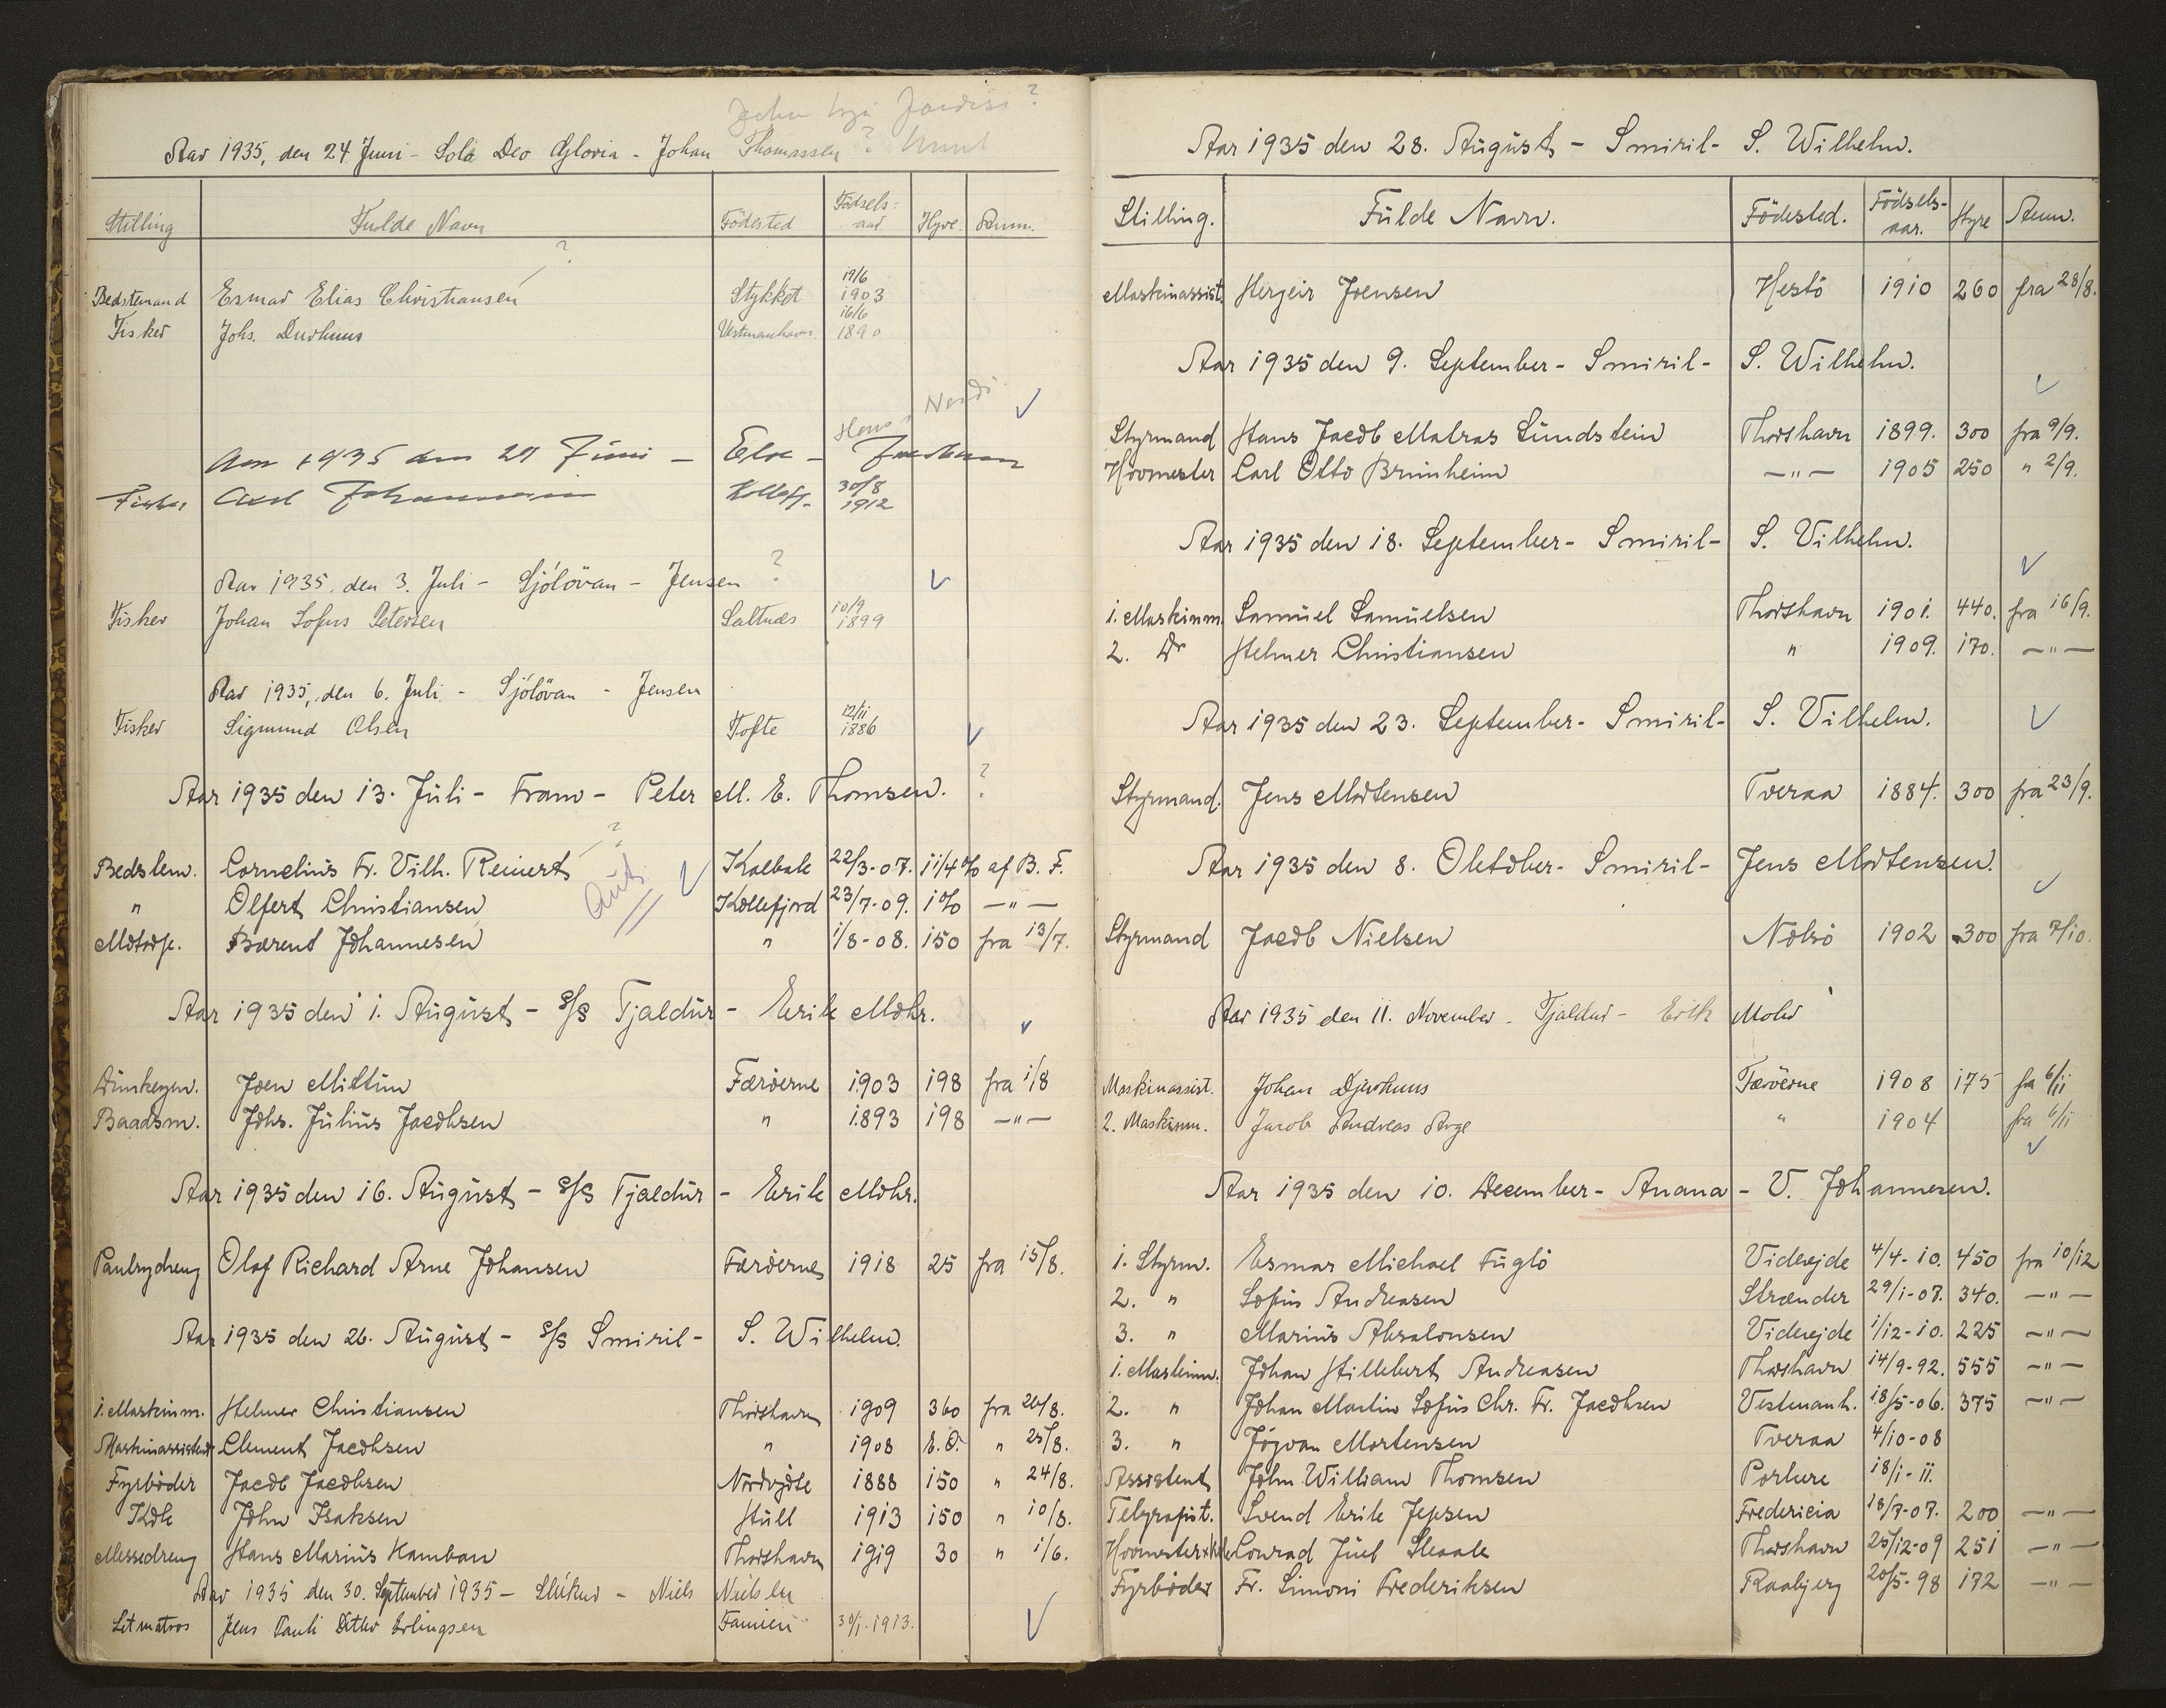 Aar 1935, den 24 Juni - Sola Deo Gloria - Johan Thomassen ?
Stilling Fulde Navn Födested Födsels-aar. Hyre. Anm.
?
Bedstemand Esmar Elias Christiansen Stykket 19/6 1903
Fisker Johs. Durhuus Vestmanhavn 16/6 1890
Aar 1935 den 29 Juni -
Fisker Axel Johannesen Kollefj. 30/8 1912
Aar 1935, den 3. Juli - Sjólövan - Jensen ?
Fisker Johan Sofus Petersen Saltnæs 10/9 1899
Aar 1935, den 6. Juli - Sjólövan - Jensen
Fisker Sigmund Olsen Tofte 12/11 1886
Aar 1935 den 13. Juli - Fram - Peter M. E. Thomsen. ?
Bedstem. Cornelius Fr. Vilh. Reinert ? Kalbak 22/3-07. 1 1/4 % af B. F.
" Olfert Christiansen Kollefjord 23/7-09. 1% -"-
Motorp. Bærent Johannesen " 1/8-08. 150 fra 13/7.
Aar 1935 den 1. August - s/s Tjaldur - Erik Mohr.
Dunkeym. Joen Mittun Færöerne 1903 198 fra 1/8
Baadsm. Johs. Julius Jacobsen " 1893 198 -"-
Aar 1935 den 16. August - s/s Tjaldur - Erik Mohr.
Pantrydreng Olaf Richard Arne Johansen Færöerne 1918 25 fra 15/8.
Aar 1935 den 26. August - s/s Smiril - S. Wilhelm.
1. Maskinm. Helmer Christiansen Thorshavn 1909 360 fra 26/8.
Maskinassistent Clement Jacobsen " 1908 E.O. " 25/8.
Fyrböder Jacob Jacobsen Nordrgöte 1888 150 " 24/8.
Kok John Isaksen Hull 1913 150 " 10/8.
Messedreng Hans Marius Kamban Thorshavn 1919 30 " 1/6.
Aar 1935 den 30. September 1935 - Slúkur - Niels Nielsen
Letmatros Jens Pauli Ditlev Erlingsen Famien 30/1-1913.
Aar 1935 den 28. August - Smiril - S. Wilhelm.
Stilling. Fulde Navn. Födested. Födsels-aar. Hyre Anm.
Maskinassist. Hergeir Joensen Hestö 1910 260 fra 28/8.
Aar 1935 den 9. September - Smiril - S. Wilhelm.
Styrmand Hans Jacob Matras Lundstein Thorshavn 1899. 300 fra 9/9.
Hovmester Carl Otto Brunheim -"- 1905 250 " 2/9.
Aar 1935 den 18. September - Smiril - S. Vilhelm.
1. Maskinm. Samuel Samuelsen Thorshavn 1901. 440. fra 16/9.
2. Do Helmer Christiansen " 1909. 170. -"-
Aar 1935 den 23. September - Smiril - S. Vilhelm.
Styrmand. Jens Mortensen Tveraa 1884. 300 fra 23/9.
Aar 1935 den 8. Oktober - Smiril - Jens Mortensen.
Styrmand Jacob Nielsen Nolsö 1902 300 fra 7/10.
Aar 1935 den 11. November - Tjaldur - Erik Mohr
Maskinassist. Johan Djurhuus Færöerne 1908 175 fra 6/11
2. Maskinm. Jacob Andreas Arge " 1904 fra 6/11
Aar 1935 den 10. December - Anana - V. Johannesen.
1. Styrm. Esmar Michael Fuglö Viderejde 4/4-10. 450 fra 10/12
2. " Sofus Andreasen Strænder 29/1-07. 340. -"-
3. " Marius Absalonsen Viderejde 1/12-10. 225 -"-
1. Maskinm. Johan Hillebert Andreasen Thorshavn 14/9-92. 555 -"-
2. " Johan Martin Sofus Chr. Fr. Jacobsen Vestmanh. 18/5-06. 375 -"-
3. " Jógvan Mortensen Tveraa 4/10-08
Assistent John William Thomsen Porkere 18/1-11.
Telegrafist. Svend Erik Jepsen Fredericia 18/7-07. 200 -"-
Hovmester+kok Conrad Juel Skaale Thorshavn 25/12-09 251 -"-
Fyrböder Fr. Simoni Frederiksen Raabjerg 20/5-98 172 -"-